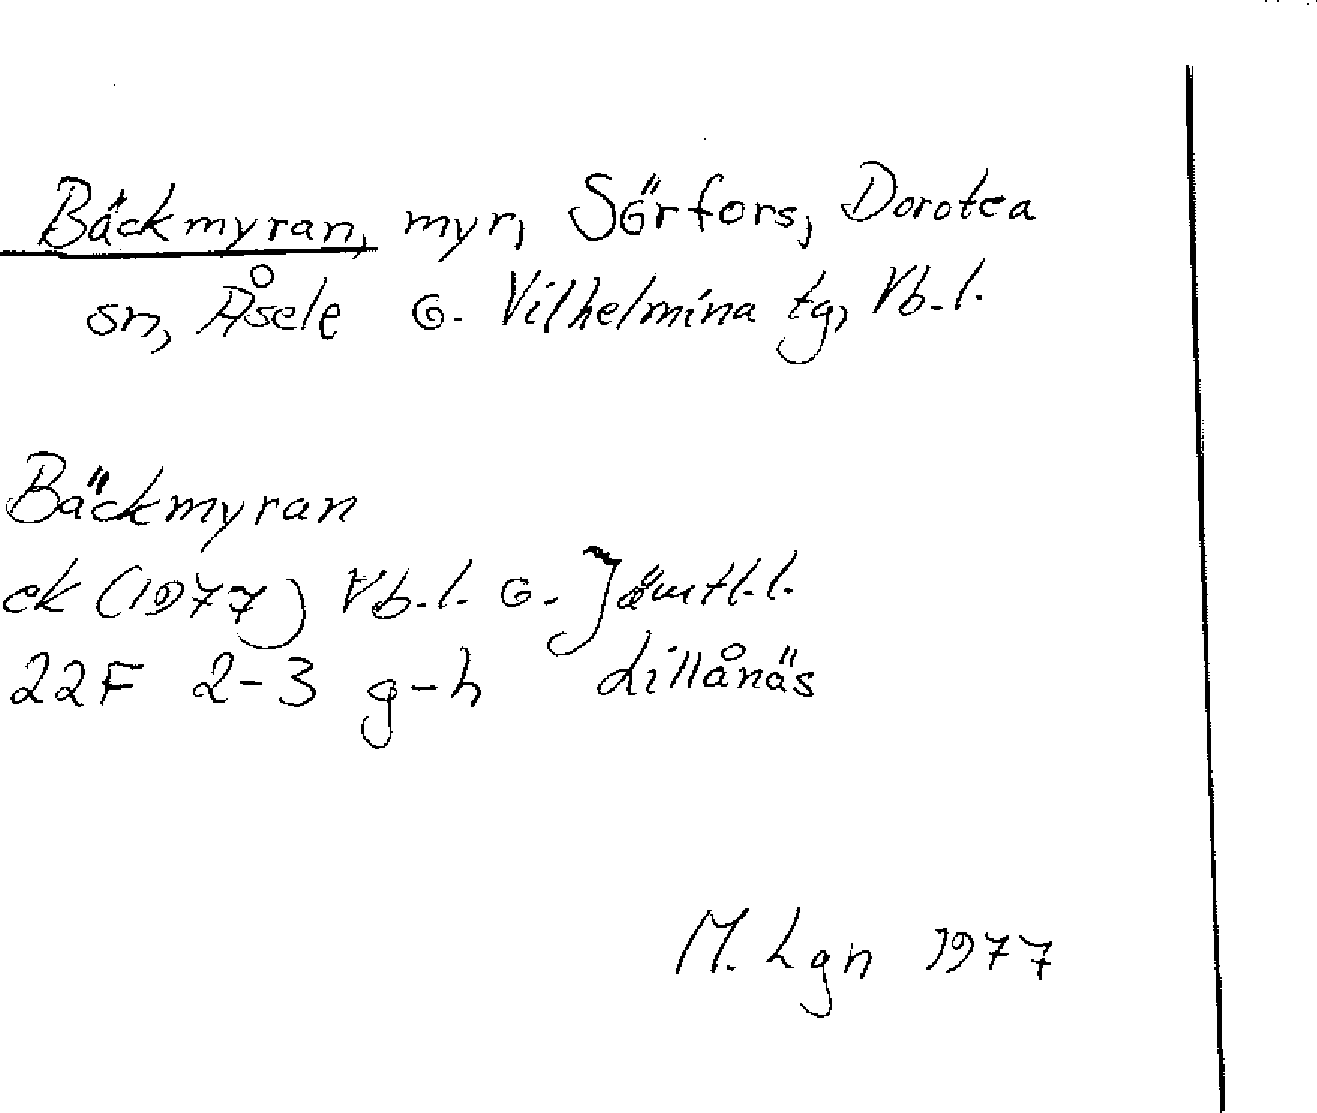 Bäckmyran, myr, Sörfors, Dorotea
sn, Åsele o. Vilhelmina tg, Vb.l.
Bäckmyran
ek (1977) Vb.l. o. Jämtl.l.
22F 2-3 g-h Lillånäs
M. Lgn 1977